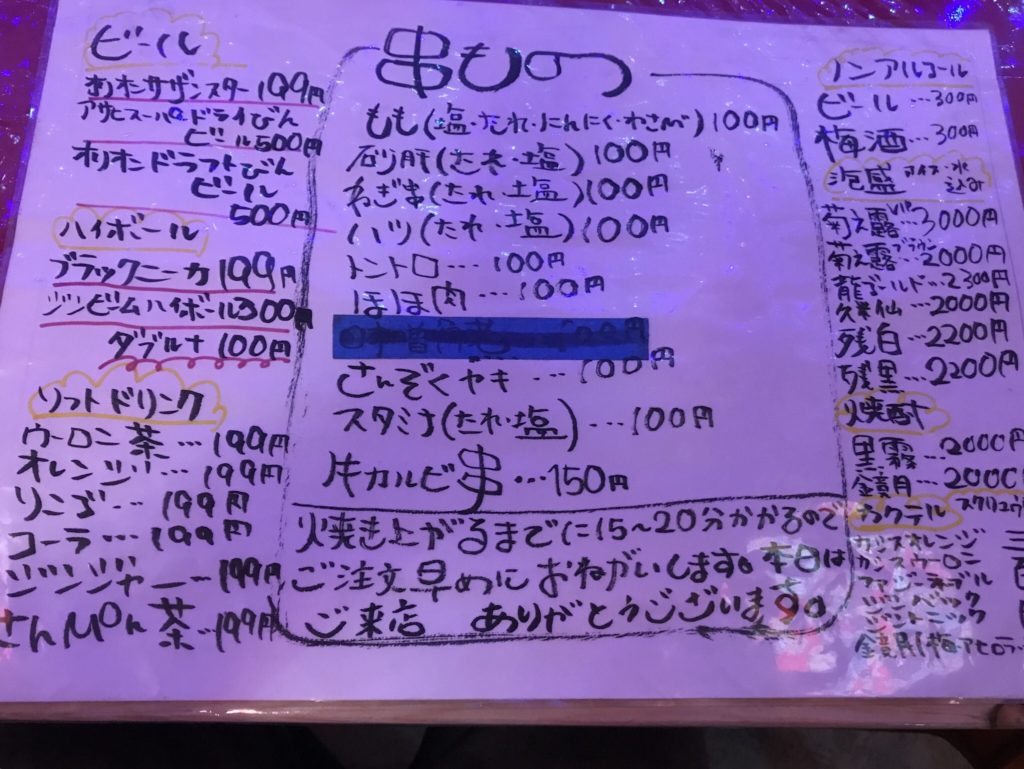 ビール
オリオンサザンスター 199円
アサヒスーパードライびん
ビール 500円
オリオンドラフトびん
ビール
500円
ハイボール
ブラックニッカ 199円
ジンビームハイボール 300
ダブル+ 100円
ソフトドリンク
ウーロン茶…199円
オレンジ…199円
りんご…199円
コーラ…199円
ジンジャー…199円
さんぴん茶…199円
串もの
もも(塩・たれ・にんにく・わさび) 100円
砂肝(たれ・塩) 100円
ねぎま(たれ・塩) 100円
ハツ(たれ・塩) 100円
トントロ…100円
ほほ肉…100円
さんぞくヤキ…100円
スタミナ(たれ・塩)…100円
牛カルビ串…150円
焼き上がるまでに15〜20分かかるので
ご注文早めにおねがいします。本日は
ご来店 ありがとうございます。
ノンアルコール
ビール…300円
梅酒…300円
泡盛 アイス・水
込み
菊之露 VIP 3000円
菊之露ブラウン 2000円
龍ゴールド…2300円
久米仙 2000円
残白…2200円
残黒…2200円
焼酎
黒霧…2000円
鏡月…2000
カクテル
カシスオレンジ
カシスウーロン
ファジーネーブル
ジンバック
ジントニック